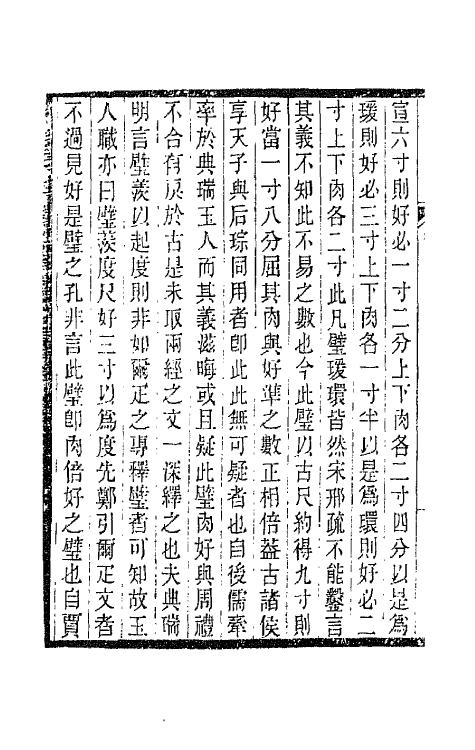 宣六寸則好必一寸二分上下肉各二寸四分以是爲
瑗則好必三寸上下肉各一寸半以是爲環則好必二
寸上下肉各二寸此凡璧瑗環皆然宋邢疏不能鑿言
其義不知此不易之數也今此璧以古尺約得九寸則
好當一寸八分屈其肉與好準之數正相倍葢古諸侯
享天子與后琮同用者卽此此無可疑者也自後儒牽
率於典瑞玉人而其義滋晦或且疑此璧肉好與周禮
不合有戾於古是未取兩經之文一深繹之也夫典瑞
明言璧羨以起度則非如爾疋之專釋璧者可知故玉
人職亦曰璧羨度尺好三寸以爲度先鄭引爾疋文者
不過見好是璧之孔非言此璧卽肉倍好之璧也自賈